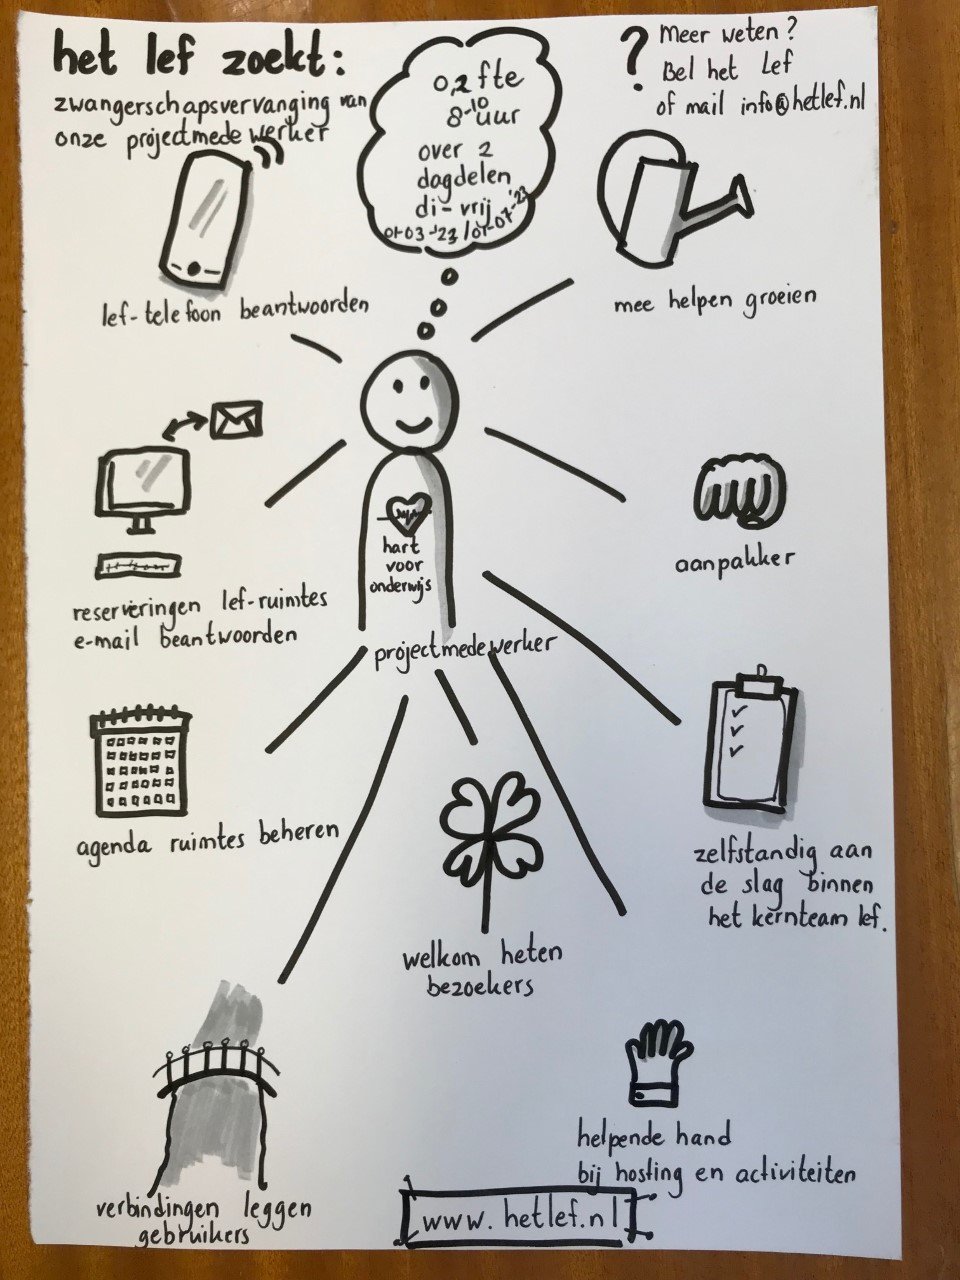 het lef zoekt:
zwangerschapsvervanging van
onze projectmedewerker
0,2 fte
8-10 uur
over 2
dagdelen
di-vrij
01-03-'23 / 01-07-'23
? Meer weten?
Bel het Lef
of mail info@hetlef.nl
lef-telefoon beantwoorden
mee helpen groeien
reserveringen lef-ruimtes
e-mail beantwoorden
hart
voor
onderwijs
projectmedewerker
aanpakker
agenda ruimtes beheren
zelfstandig aan
de slag binnen
het kernteam lef.
welkom heten
bezoekers
verbindingen leggen
gebruikers
helpende hand
bij hosting en activiteiten
www.hetlef.nl